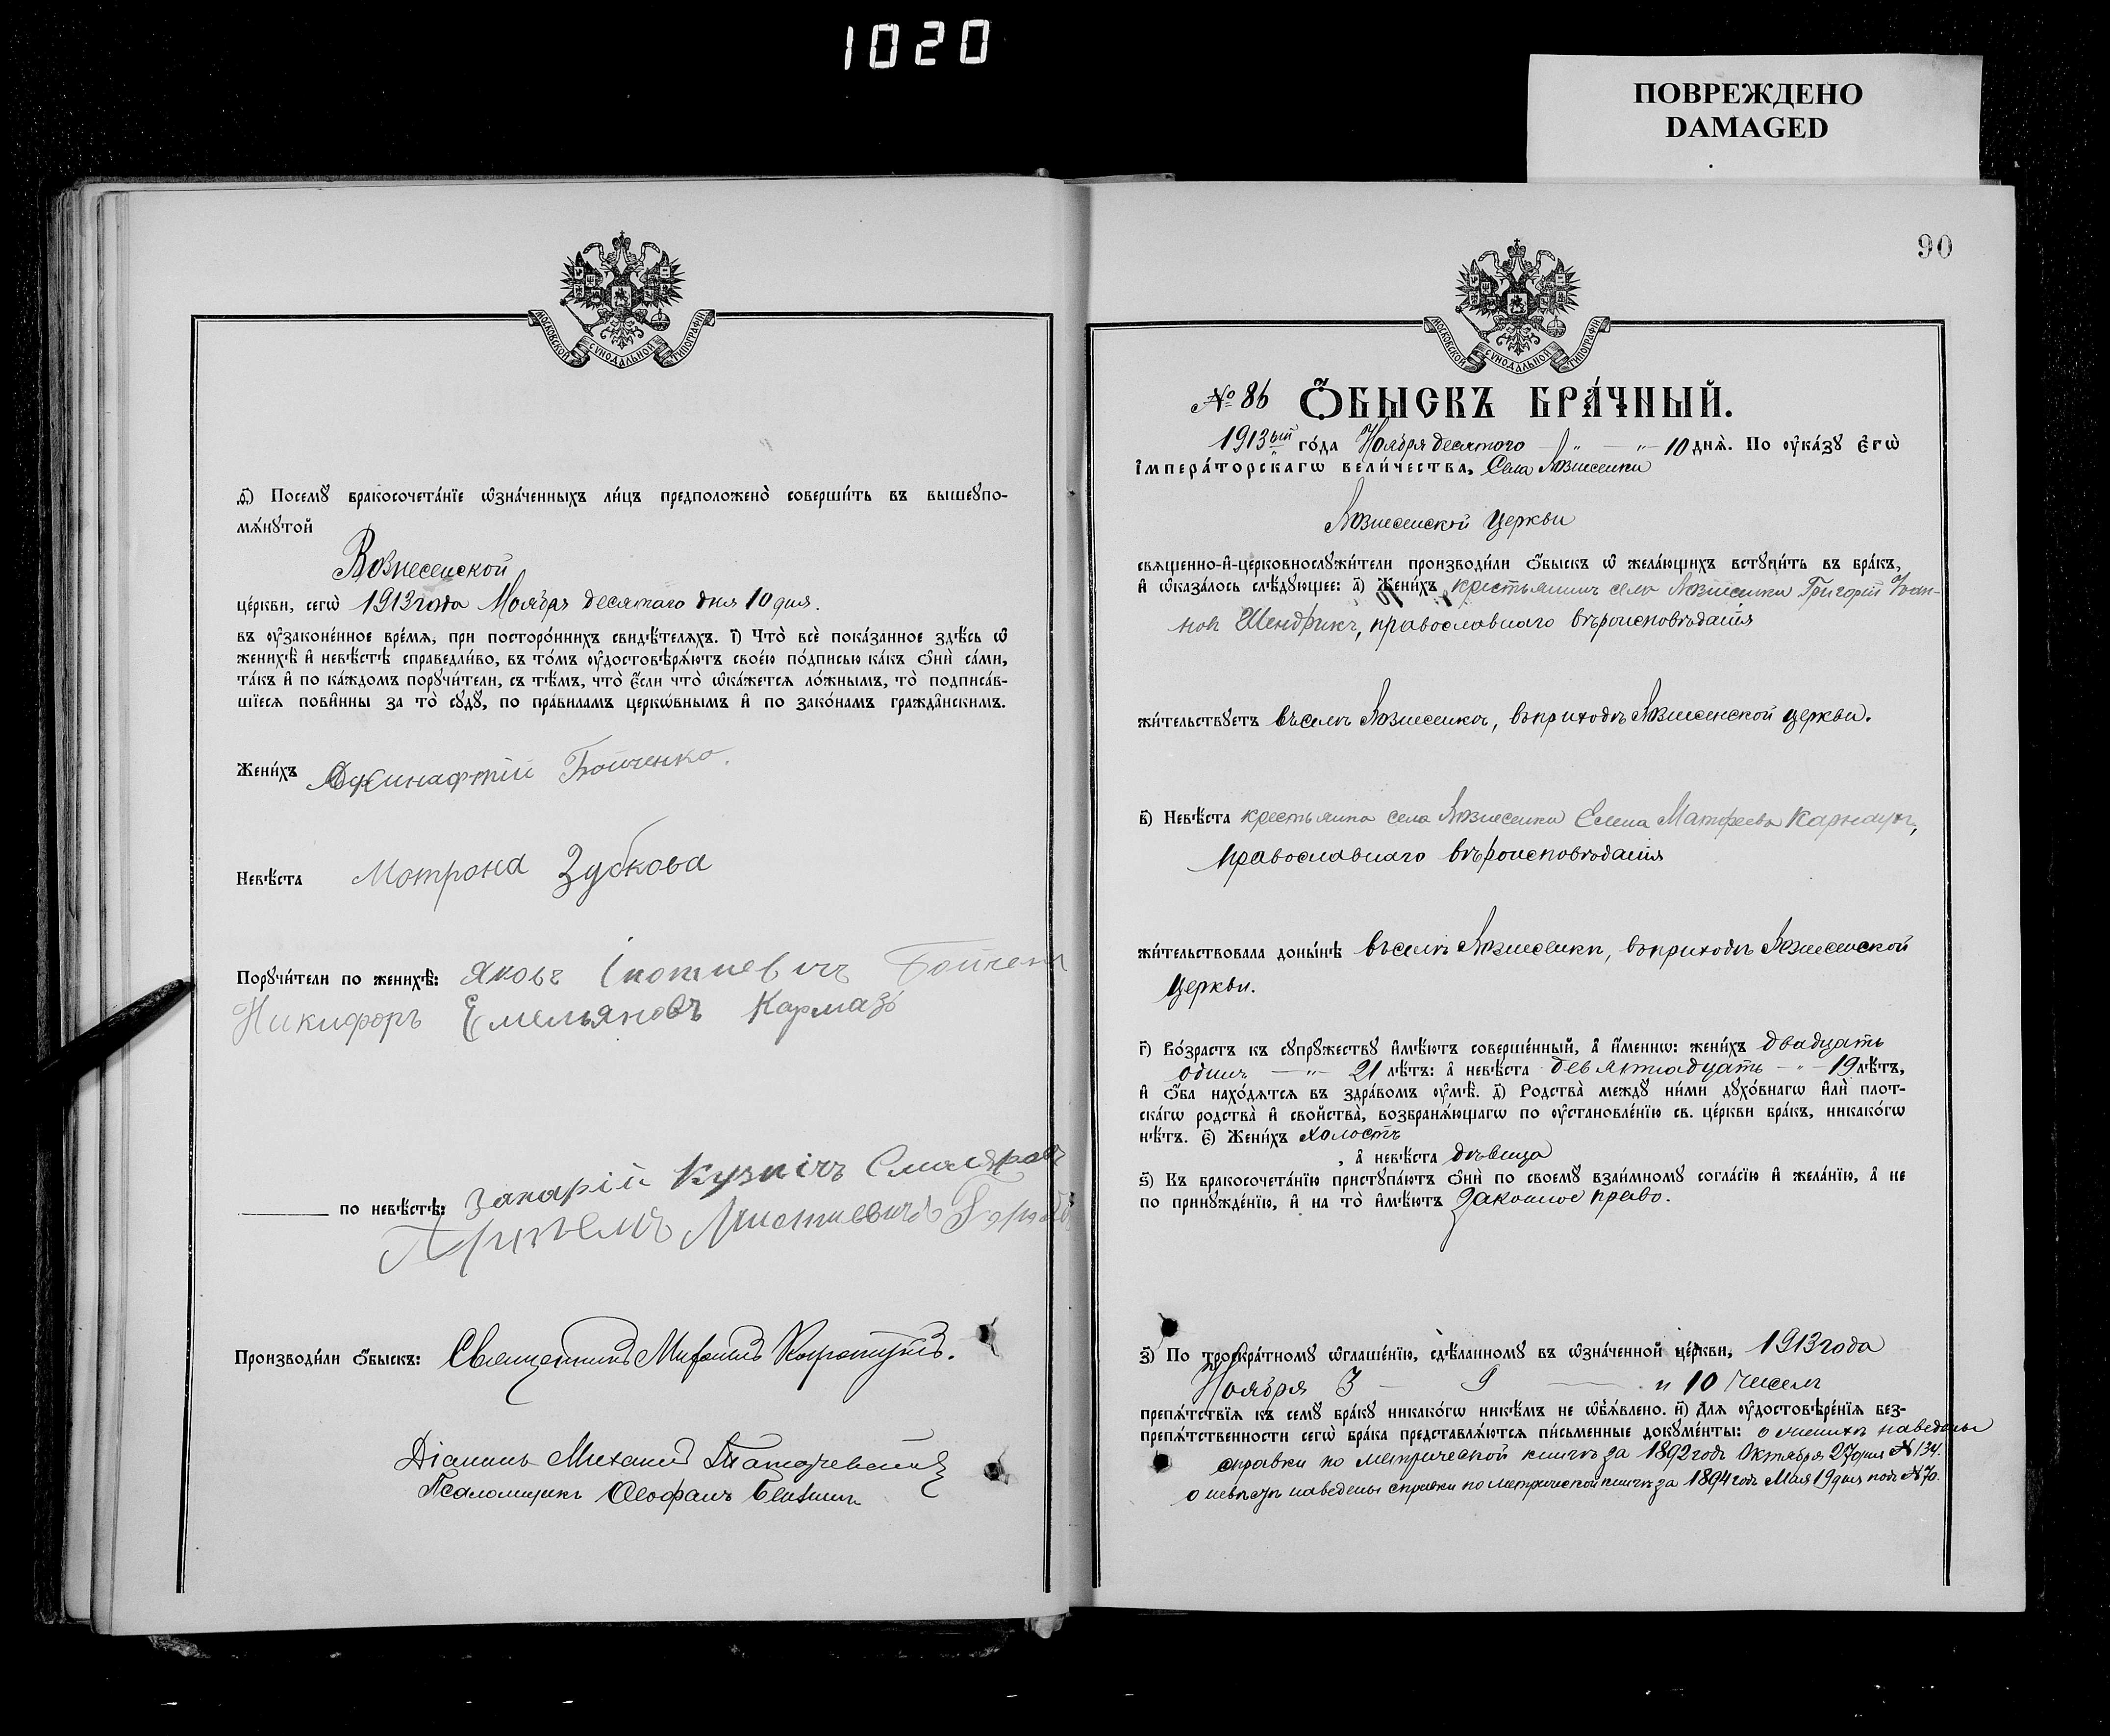 1020
ПОВРЕЖДЕНО
DAMAGED
МОСКОВСКОЙ СѴНОДАЛЬНОЙ ТИПОГРАФІИ
ѳ҃) Посемꙋ бракосочета́нїе ѡ҆зна́ченныхъ ли́цъ предположено̀ соверши́ть въ вышеꙋпо-
мѧ́нꙋтой
Вознесенской
це́ркви, сегѡ̀ 1913 года Ноября десятаго дня 10 дня.
въ ᲂу҆зако́не́нное вре́мѧ, при посторо́ннихъ свидѣ́телѧхъ. і҃) Что̀ всѐ пока́занное здѣ́сь ѡ҆
женихѣ̀ и҆ невѣ́стѣ справедли́во, въ то́мъ ᲂу҆достовѣрѧ́ютъ свое́ю по́дписью ка́къ ѻ҆нѝ са́ми,
та́къ и҆ по ка́ждомъ порꙋчи́тели, съ тѣ́мъ, что̀ є҆́сли что̀ ѡ҆ка́жетсѧ ло́жнымъ, то̀ подписа́в-
шїесѧ пови́нны за то̀ сꙋдꙋ̀, по пра́виламъ церко́внымъ и҆ по зако́намъ гражда́нскимъ.
Жени́хъ Бойченко.
Невѣ́ста Мотрона Зубкова
Порꙋчи́тели по женихѣ̀: Яковъ
Никифоръ Емельяновъ Кармазь
по невѣ́стѣ: Захарій Кузмичъ
Производи́ли ѻ҆́быскъ: Священникъ
Діаконъ Михаилъ
Псаломщикъ Ѳеофанъ
90
МОСКОВСКОЙ СѴНОДАЛЬНОЙ ТИПОГРАФІИ
№ 86 Ѻ҆́БЫСКЪ БРА́ЧНЫЙ.
1913ый го́да Ноября десятого 10 днѧ̀. По ᲂу҆ка́зꙋ є҆гѡ̀
і҆мпера́торскагѡ вели́чества, Села Вознесенки
Вознесенской Церкви
свѧщенно-и҆-церковнослꙋжи́тели производи́ли ѻ҆́быскъ ѡ҆ жела́ющихъ встꙋпи́ть въ бра́къ,
и҆ ѡ҆каза́лось слѣ́дꙋющее: а҃) Жени́хъ крестьянинъ села Вознесенки Григорій Іоан-
новъ Шендрикъ, православнаго вѣроисповѣданія
жи́тельствꙋетъ въ селѣ Вознесенкѣ, въ приходѣ Вознесенской церкви.
в҃) Невѣ́ста крестьянка села Вознесенки Елена Матфеева Карнаухъ,
православнаго вѣроисповѣданія
жи́тельствовала доны́нѣ въ селѣ Вознесенкѣ, въ приходѣ Вознесенской
Церкви.
г҃) Во́зрастъ къ сꙋпрꙋ́жествꙋ и҆мѣ́ютъ соверше́нный, а҆ и҆́меннѡ: жени́хъ двадцать
одинъ 21 лѣ́тъ: а҆ невѣ́ста девятнадцать 19 лѣ́тъ,
и҆ ѻ҆́ба нахо́дѧтсѧ въ здра́вомъ ᲂу҆мѣ̀. д҃) Родства̀ междꙋ̀ ни́ми дꙋхо́внагѡ и҆лѝ пло́т-
ска́гѡ родства̀ и҆ сво́йства̀, возбранѧ́ющагѡ по ᲂу҆становле́нїю св. це́ркви бра́къ, никако́гѡ
нѣ́тъ. є҃) Жени́хъ холостъ
, а҆ невѣ́ста дѣвица
ѕ҃) Къ бракосочета́нїю пристꙋпа́ютъ ѻ҆нѝ по своемꙋ̀ взаи́мномꙋ согла́сїю и҆ жела́нїю, а҆ не
по принꙋжде́нїю, и҆ на то̀ и҆мѣ́ютъ законное право.
з҃) По троекра́тномꙋ ѡ҆глаше́нїю, сдѣ́ланномꙋ въ ѡ҆зна́ченной це́ркви, 1913 года
Ноября 3 9 и 10 чиселъ
препѧ́тствїѧ къ семꙋ̀ бра́кꙋ никако́гѡ никѣ́мъ не ѡ҆б̾ѧ́влено. и҃) Длѧ ᲂу҆достовѣре́нїѧ без-
препѧ́тственности сегѡ̀ бра́ка представлѧ́ютсѧ пи́сьменные докꙋме́нты: о женихѣ наведены
справки по метрической книгѣ за 1892 годъ Октября 27 дня № 134.
о невѣстѣ наведены справки по метрической книгѣ за 1894 годъ Мая 19 дня подъ № 70.